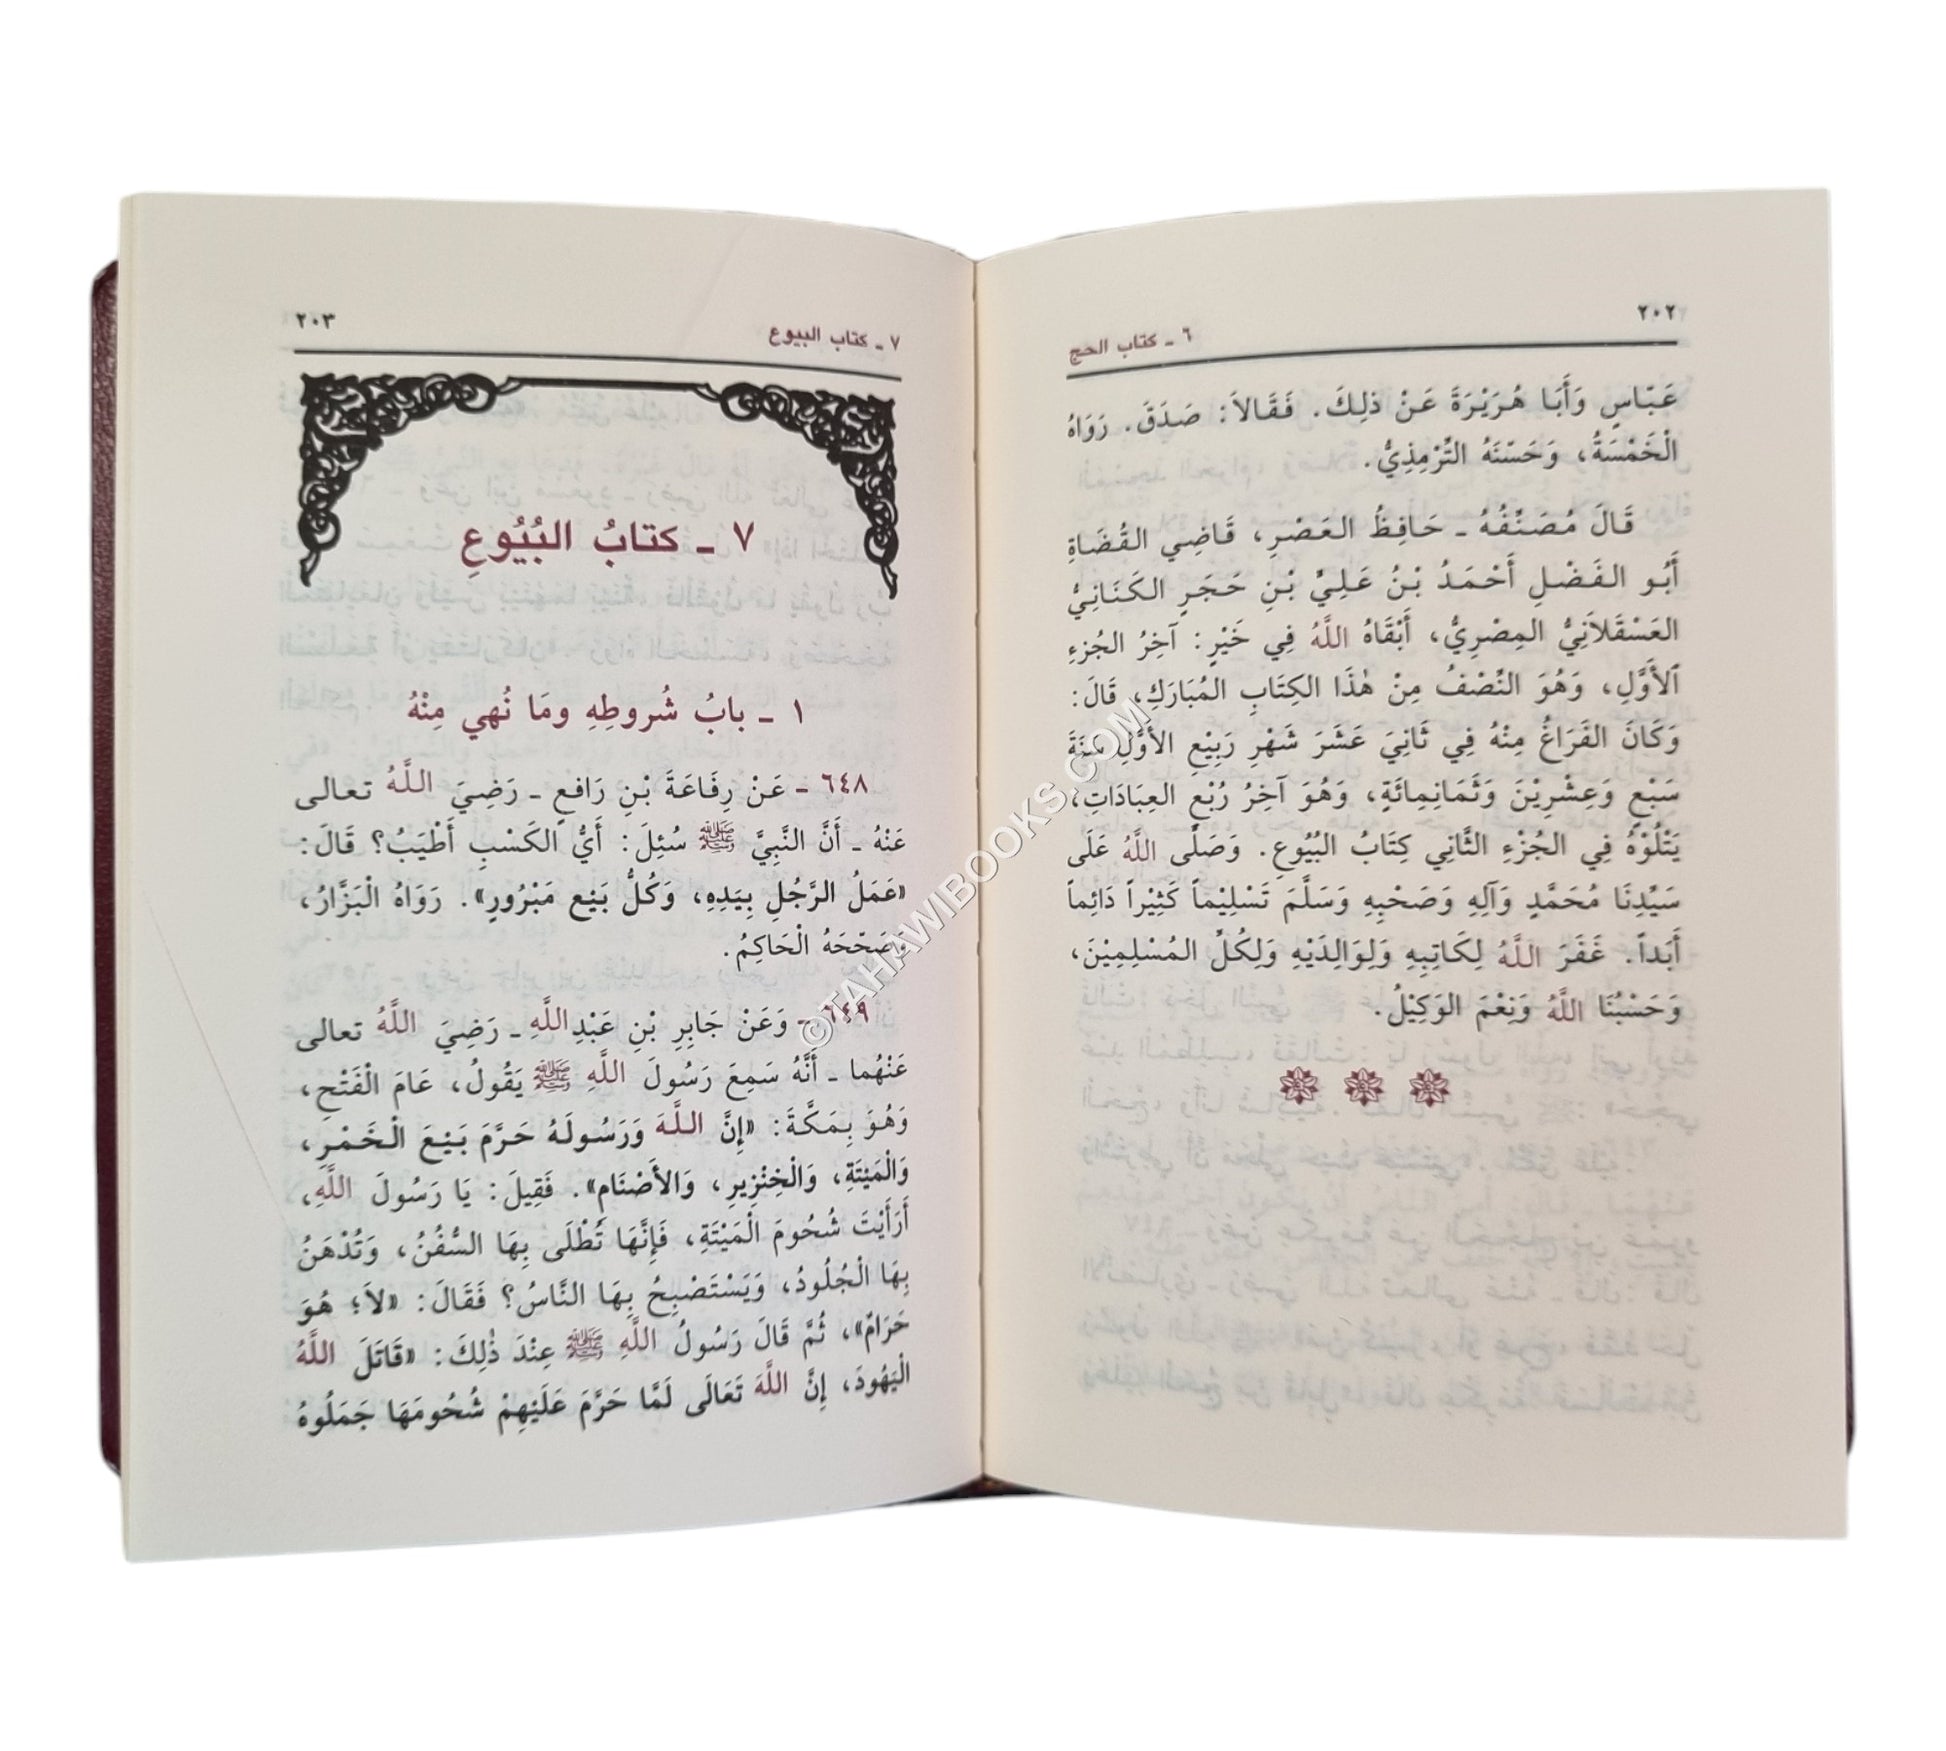 ٢٠٢
٦ ـ كتاب الحج
عَبَّاسٍ وَأَبَا هُرَيْرَةَ عَنْ ذلِكَ. فَقَالاَ: صَدَقَ. رَوَاهُ
الْخَمْسَةُ، وَحَسَّنَهُ التِّرْمِذِيُّ.
قَالَ مُصَنِّفُهُ ـ حَافِظُ العَصْرِ، قَاضِي القُضَاةِ
أَبُو الفَضْلِ أَحْمَدُ بْنُ عَلِيِّ بْنِ حَجَرٍ الكَنَانِيُّ
العَسْقَلاَنِيُّ المِصْرِيُّ، أَبْقَاهُ اللَّهُ فِي خَيْرٍ: آخِرُ الجُزءِ
الأوَّلِ، وَهُوَ النِّصْفُ مِنْ هٰذَا الكِتَابِ المُبَارَكِ، قَالَ:
وَكَانَ الفَرَاغُ مِنْهُ فِي ثَانِيَ عَشَرَ شَهْرِ رَبِيْعِ الأوَّلِ سَنَةَ
سَبْعٍ وَعِشْرِيْنَ وَثَمَانِمِائَةٍ، وَهُوَ آخِرُ رُبْعِ العِبَادَاتِ،
يَتْلُوْهُ فِي الجُزءِ الثَّانِي كِتَابُ البُيُوعِ. وَصَلَّى اللَّهُ عَلَى
سَيِّدِنَا مُحَمَّدٍ وَآلِهِ وَصَحْبِهِ وَسَلَّمَ تَسْلِيْماً كَثِيْراً دَائِماً
أَبَداً. غَفَرَ اللَّهُ لِكَاتِبِهِ وَلِوَالِدَيْهِ وَلِكُلِّ المُسْلِمِيْنَ،
وَحَسْبُنَا اللَّهُ وَنِعْمَ الوَكِيْلُ.
٧ ـ كتاب البيوع
٢٠٣
٧ ـ كتابُ البُيُوعِ
١ ـ بابُ شُروطِهِ ومَا نُهي مِنْهُ
٦٤٨ ـ عَنْ رِفَاعَةَ بْنِ رَافعٍ ـ رَضِيَ اللَّهُ تعالى
عَنْهُ ـ أَنَّ النَّبِيَّ ﷺ سُئِلَ: أَيُّ الكَسْبِ أَطْيَبُ؟ قَالَ:
«عَمَلُ الرَّجُلِ بِيَدِهِ، وَكُلُّ بَيْعٍ مَبْرُورٍ». رَوَاهُ الْبَزَّارُ،
وَصَحَّحَهُ الْحَاكِمُ.
٦٤٩ ـ وَعَنْ جَابِرِ بْنِ عَبْدِ اللَّهِ ـ رَضِيَ اللَّهُ تعالى
عَنْهُما ـ أَنَّهُ سَمِعَ رَسُولَ اللَّهِ ﷺ يَقُولُ، عَامَ الْفَتْحِ،
وَهُوَ بِمَكَّةَ: «إِنَّ اللَّهَ وَرَسُولَهُ حَرَّمَ بَيْعَ الْخَمْرِ،
وَالْمَيْتَةِ، وَالْخِنْزِيرِ، وَالأَصْنَامِ». فَقِيلَ: يَا رَسُولَ اللَّهِ،
أَرَأَيْتَ شُحُومَ الْمَيْتَةِ، فَإِنَّهَا تُطْلَى بِهَا السُّفُنُ، وَتُدْهَنُ
بِهَا الْجُلُودُ، وَيَسْتَصْبِحُ بِهَا النَّاسُ؟ فَقَالَ: «لاَ؛ هُوَ
حَرَامٌ»، ثُمَّ قَالَ رَسُولُ اللَّهِ ﷺ عِنْدَ ذٰلِكَ: «قَاتَلَ اللَّهُ
الْيَهُودَ، إِنَّ اللَّهَ تَعَالَى لَمَّا حَرَّمَ عَلَيْهِمْ شُحُومَهَا جَمَلُوهُ
© TAHAWIBOOKS.COM